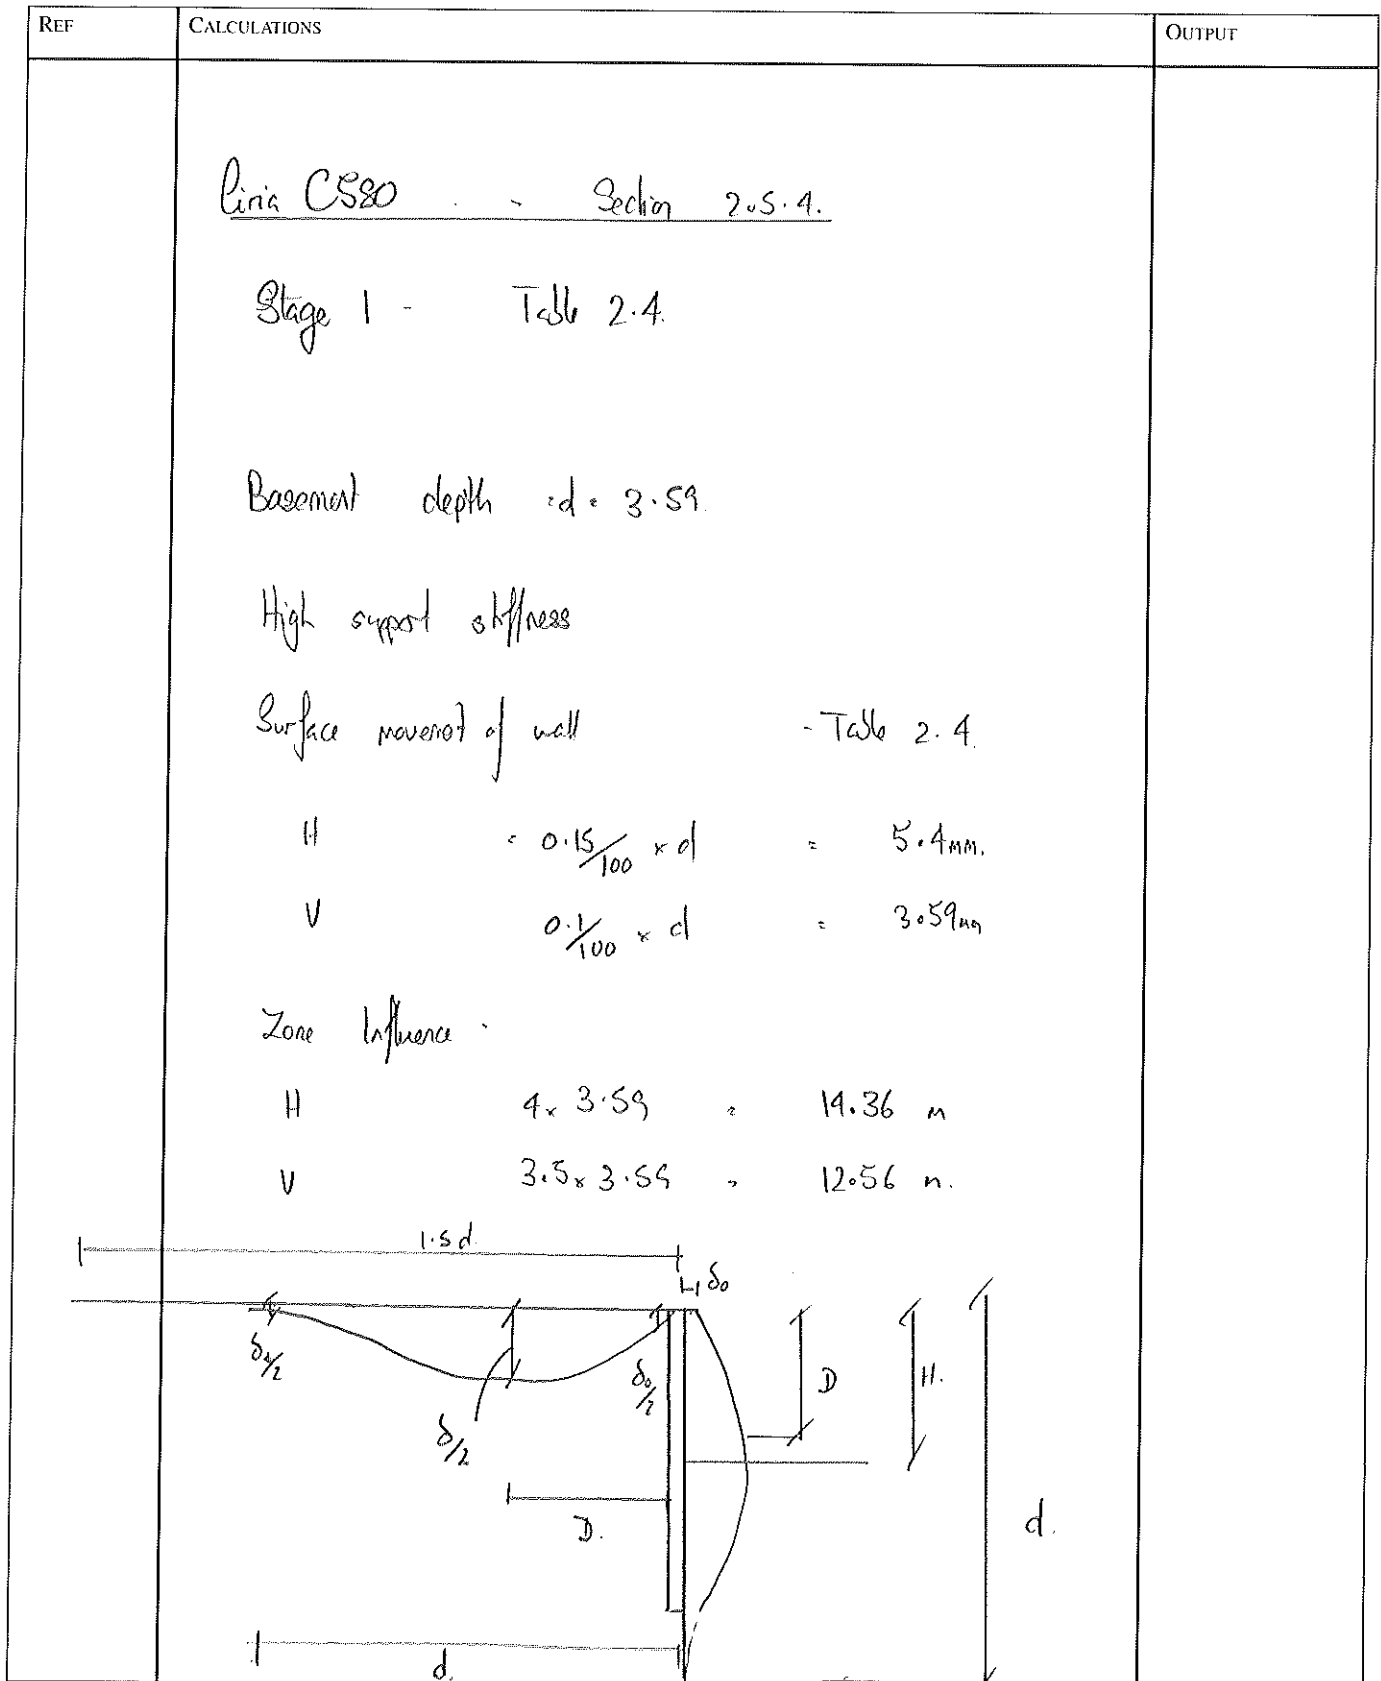 REF CALCULATIONS OUTPUT
Ciria C580 - Section 2.5.4.
Stage 1 - Table 2.4.
Basement depth = d = 3.59.
High support stiffness
Surface movement of wall - Table 2.4.
H = 0.15/100 x d = 5.4mm.
V 0.1/100 x d = 3.59mm
Zone Influence.
H 4 x 3.59 = 14.36 m
V 3.5 x 3.59 = 12.56 m.
1.5d.
δ0
δd/2
δ/2
δ0/2
D
H.
D.
d.
d.